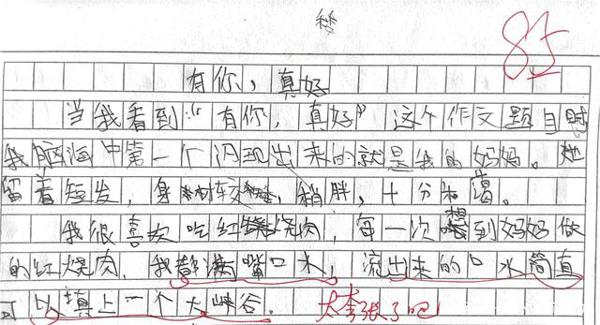 85
有你，真好
当我看到“有你，真好”这个作文题目时
我脑海中第一个闪现出来的就是我的妈妈。她
留着短发，身材较稍胖，十分和蔼。
我很喜欢吃红烧肉，每一次想到妈妈做
的红烧肉，我都满嘴口水，流出来的口水简直
可以填上一个大峡谷。 太夸张了吧